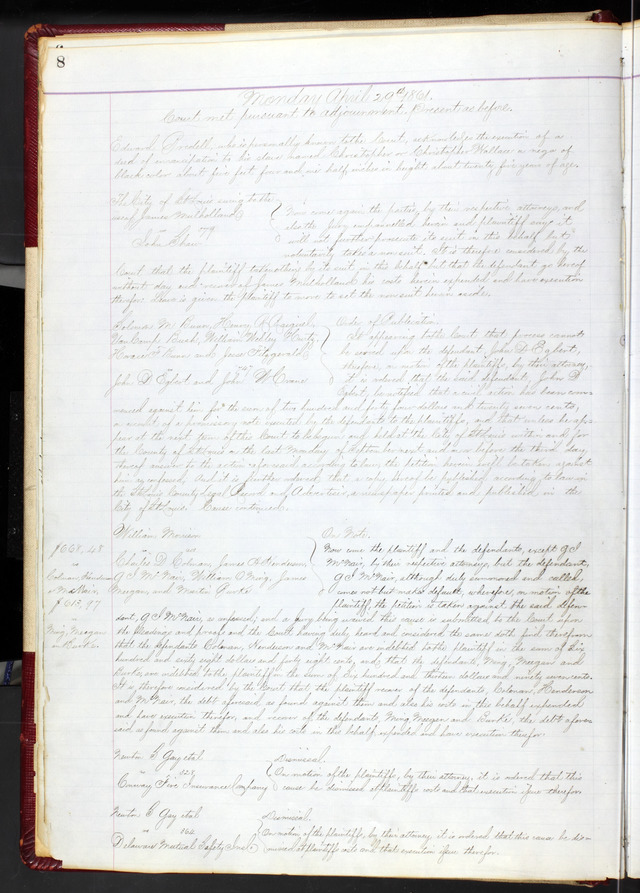 8
Monday April 29th 1861.
Court met pursuant to adjournment. Present as before.
Edward Tredell, who is personally known to the Court, acknowledges the execution of a
deed of emancipation to his slave named Christopher or Christopher Wallace a negro of
black color about five feet four and one half inches in height about twenty five years of age.
The City of St Louis suing to the
use of James Mulholland
vs 779
John Shaw
Now come again the parties, by their respective attorneys, and
also the jury empannelled herein and plaintiff says it
will not further prosecute its suit in this behalf but
voluntarily takes a nonsuit. It is therefore considered by the
Court that the plaintiff take nothing by its suit in this behalf but that the defendant go hereof
without day and recover of James Mulholland his costs herein expended and have execution
therefor. Leave is given the plaintiff to move to set the nonsuit herein aside.
Solomon M
Van Camp Bush, William Wobley
Horace and Jones Fitzgerald
vs
John D Egbert and John W Evans
Order of Publication.
It appearing to the Court that process cannot
be served upon the defendant, John D. Egbert,
therefore, on motion of the plaintiffs, by their attorney,
it is ordered that the said defendant, John D
Egbert, be notified that a civil action has been com-
menced against him for the sum of two hundred and forty four dollars and twenty seven cents,
amount of a promissory note executed by the defendants to the plaintiffs, and that unless he ap-
pear at the next term of this Court to be begun and held at the City of St Louis within and for
the County of St Louis on the last Monday of September next and on or before the third day
thereof answer to the action aforesaid according to law, the petition herein will be taken against
him as confessed. And it is further ordered, that a copy hereof be published according to law in
the St Louis County Legal Record and Advertiser, a newspaper printed and published in the
City of St Louis. Cause continued.
$668,48
vs
Coleman, Henderson
& McNair,
$613,97
vs
Ming, Meegan
and Burke
William Morrison
vs
Charles D Colman, James B Henderson
G S McNair, William O Ming, James
Meegan, and Martin Burke
On Note.
Now come the plaintiff and the defendants, except G S
McNair, by their respective attorneys, but the defendant,
G S McNair, although duly summoned and called,
comes not but makes default, wherefore, on motion of the
plaintiff, the petition is taken against the said defen-
dant, G S McNair, as confessed; and a jury being waived this cause is submitted to the Court upon
the pleadings and proofs and the Court having duly heard and considered the same doth find therefrom
that the defendants Colman, Henderson and McNair are indebted to the plaintiff in the sum of Six
hundred and sixty eight dollars and forty eight cents, and that the defendants, Ming, Meegan and
Burke, are indebted to the plaintiff in the sum of Six hundred and thirteen dollars and ninety seven cents.
It is, therefore considered by the Court that the plaintiff recover of the defendants, Colman, Henderson
and McNair, the debt aforesaid as found against them and also his costs in this behalf expended
and have execution therefor, and recover of the defendants, Ming, Meegan and Burke, the debt afore-
said as found against them and also his costs in this behalf expended and have execution therefor.
Newton G Gay et al
vs
Conway Fire Insurance Company
Dismissal.
On motion of the plaintiffs, by their attorney, it is ordered that this
cause be dismissed at plaintiffs costs and that execution issue therefor
Newton G Gay et al
vs
Delaware Mutual Safety Ins. Co
Dismissal.
On motion of the plaintiffs, by their attorney, it is ordered that this cause be dis-
missed at plaintiffs costs and that execution issue therefor.